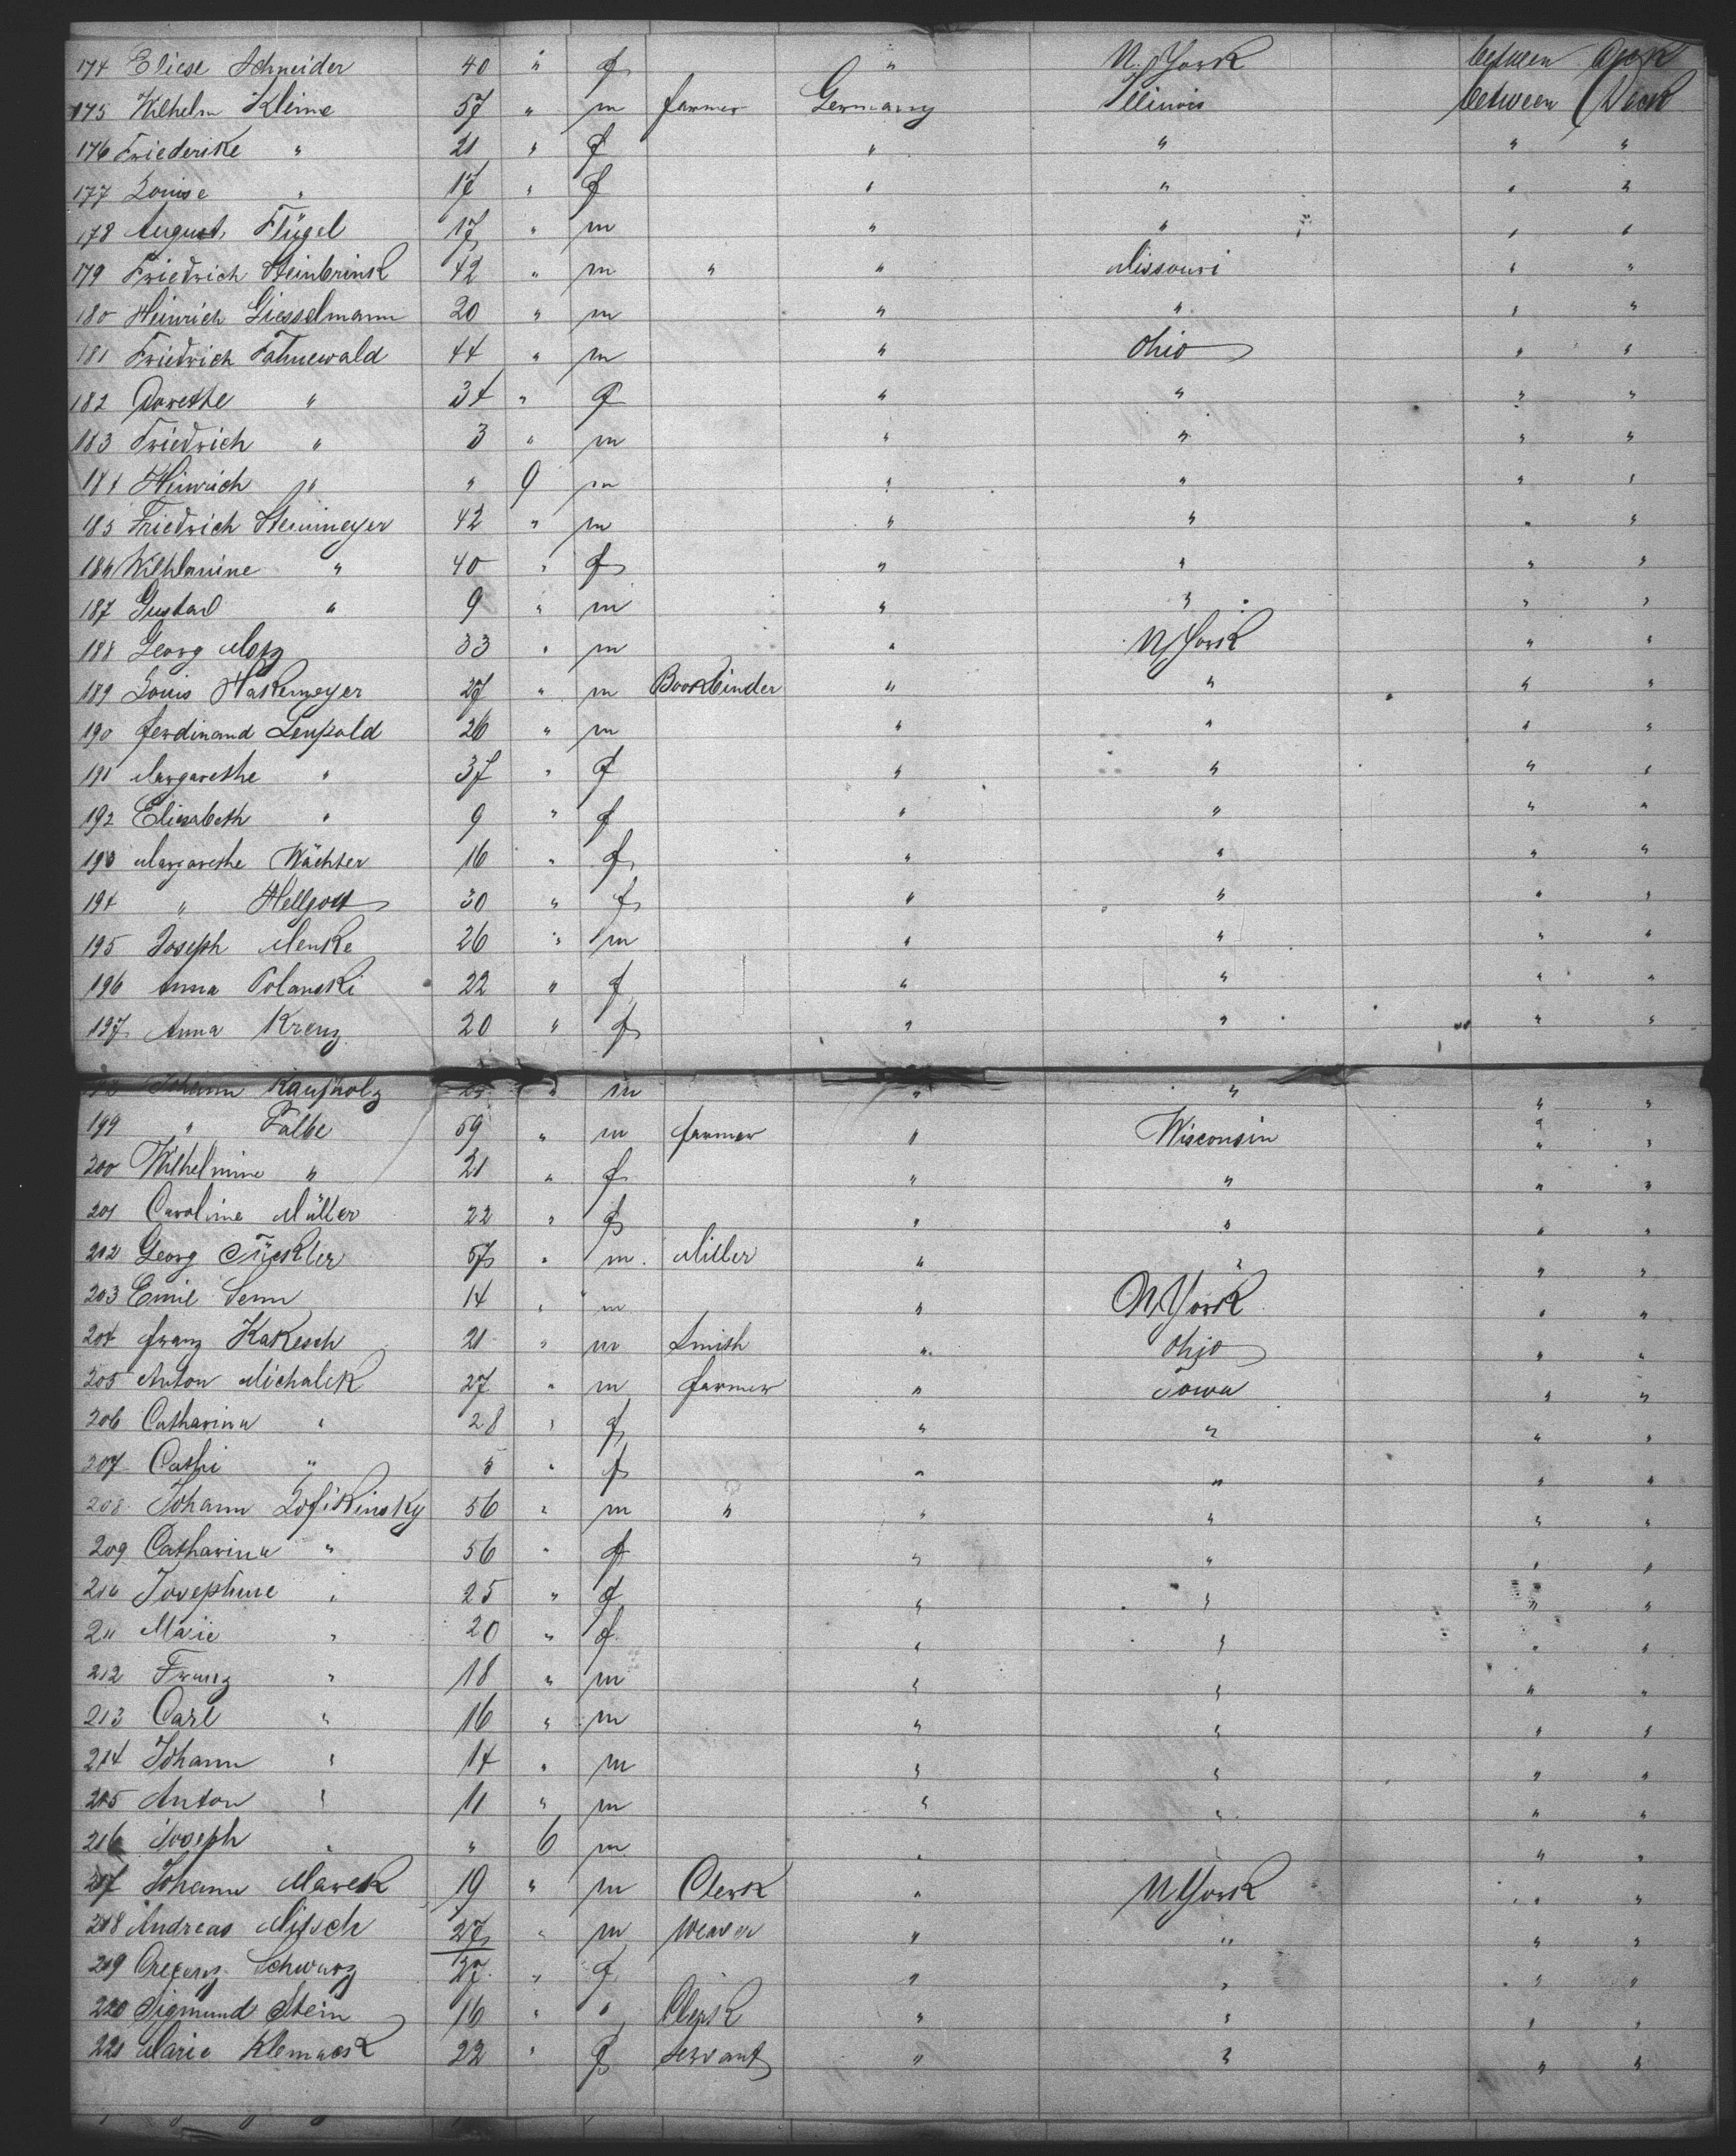 174 Eliese Schneider 40 " f " N. York between Deck
175 Wilhelm Kleine 57 " m farmer Germany Illinois between Deck
176 Friederike " 21 " f " " " "
177 Louise " 17 " f " " " "
178 August Flügel 17 " m " " " "
179 Friedrich Steinbrink 42 " m " " Missouri " "
180 Heinrich Giesselmann 20 " m " " " "
181 Friedrich Fahnewald 44 " m " Ohio " "
182 Dorethe " 34 " f " " " "
183 Friedrich " 3 " m " " " "
184 Heinrich " " 9 m " " " "
185 Friedrich Stenimeyer 42 " m " " " "
186 Wilhlamine " 40 " f " " " "
187 Gustav " 9 " m " " " "
188 Georg Motz 33 " m " N York " "
189 Louis Hakemeyer 27 " m Bookbinder " " " "
190 Ferdinand Leupold 26 " m " " " "
191 Margarethe " 37 " f " " " "
192 Elisabeth " 9 " f " " " "
193 Margarethe Wächter 16 " f " " " "
194 " Hellgott 30 " f " " " "
195 Joseph Menke 26 " m " " " "
196 Anna Polanski 22 " f " " " "
197 Anna Krenz 20 " f " " " "
Johann Kaufholz " m " " " "
199 " Falbe 59 " m farmer " Wisconsin " "
200 Wilhelmine " 21 " f " " " "
201 Caroline Müller 22 " f " " " "
202 Georg 57 " m Miller " " " "
203 Emil Senn 14 " m " N York " "
204 Franz Kakesch 21 " m Smith " Ohio " "
205 Anton Michalek 27 " m farmer " Iowa " "
206 Catharina " 28 " f " " " "
207 Cathi " 5 " f " " " "
208 Johann 56 " m " " " " "
209 Catharina " 56 " f " " " "
210 Josephine " 25 " f " " " "
211 Marie " 20 " f " " " "
212 Franz " 18 " m " " " "
213 Carl " 16 " m " " " "
214 Johann " 14 " m " " " "
215 Anton " 11 " m " " " "
216 Joseph " " 6 m " " " "
217 Johann Marek 19 " m Clerk " N York " "
218 Andreas Nitsch 27 " m weaver " " " "
219 Schwarz 27 " f " " " "
220 Sigmund Stein 16 " " Clerk " " " "
221 Marie 22 " f servant " " " "